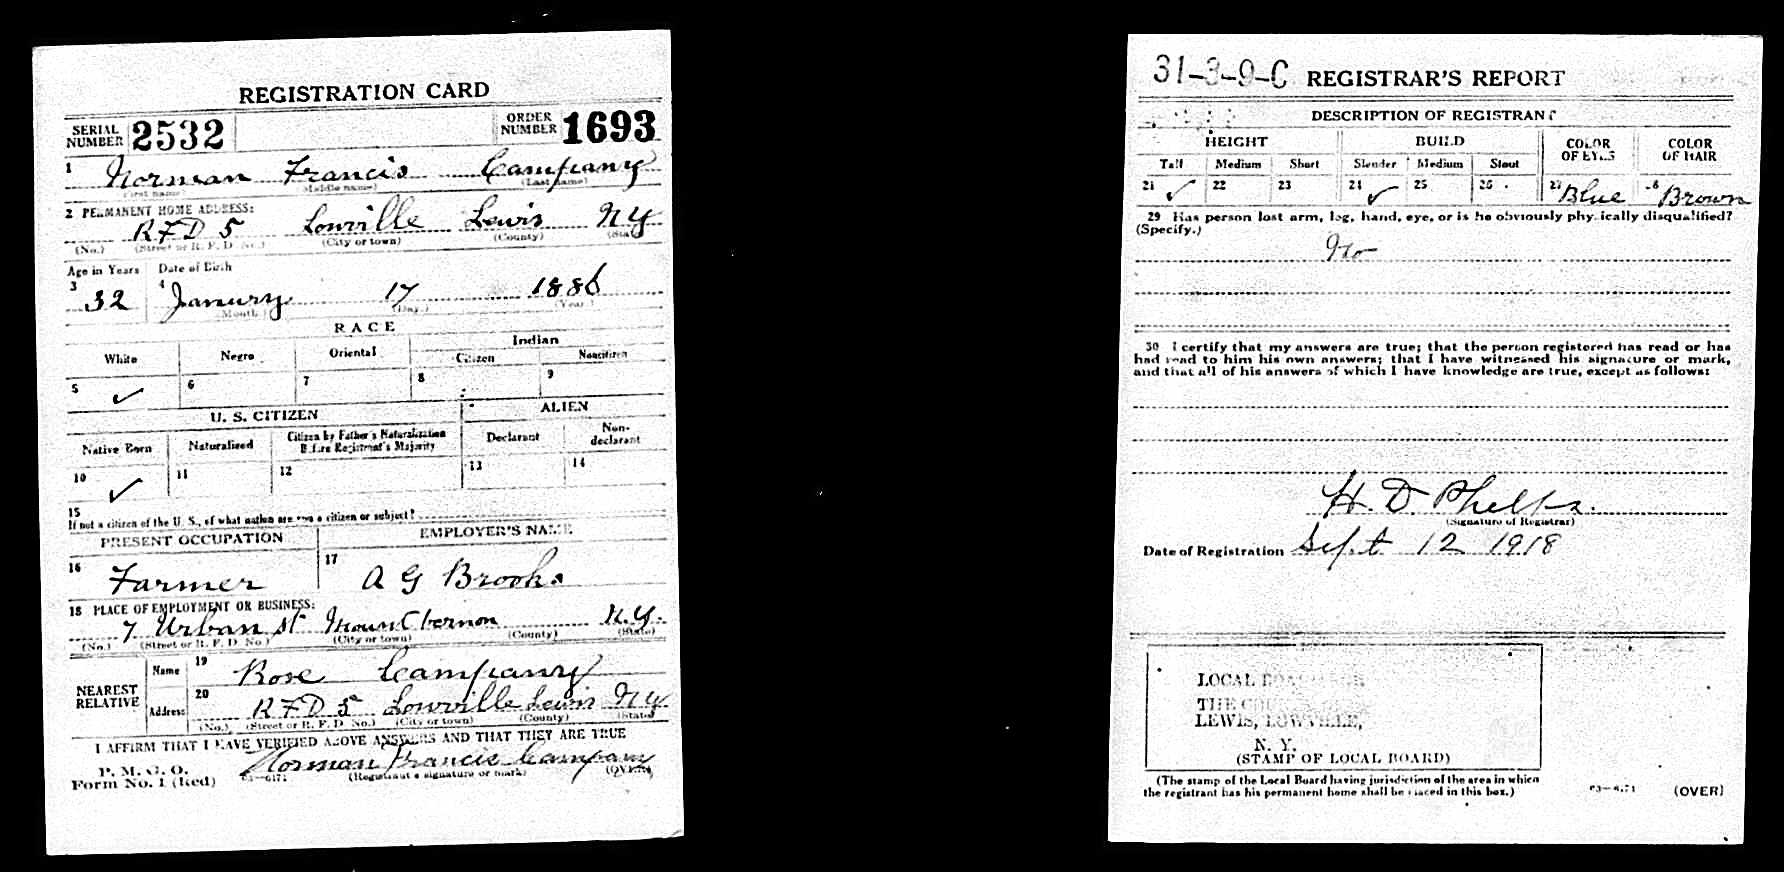 REGISTRATION CARD
SERIAL NUMBER 2532 ORDER NUMBER 1693
1 Norman Francis Campany
(First name) (Middle name) (Last name)
2 PERMANENT HOME ADDRESS:
RFD 5 Lowville Lewis NY
(No.) (Street or R. F. D. No.) (City or town) (County) (State)
Age in Years Date of Birth
3 32 4 Janury 17 1886
(Month) (Day) (Year)
RACE
White Negro Oriental Indian
Citizen Noncitizen
5 ✓ 6 7 8 9
U. S. CITIZEN ALIEN
Native Born Naturalized Citizen by Father's Naturalization Before Registrant's Majority Declarant Non-declarant
10 ✓ 11 12 13 14
15
If not a citizen of the U. S., of what nation are you a citizen or subject?
PRESENT OCCUPATION EMPLOYER'S NAME
16 Farmer 17 A G Brooks
18 PLACE OF EMPLOYMENT OR BUSINESS:
7 Urban st Mount Vernon N.Y.
(No.) (Street or R. F. D. No.) (City or town) (County) (State)
NEAREST RELATIVE Name 19 Rose Campany
Address 20 RFD 5 Lowville Lewis NY
(No.) (Street or R. F. D. No.) (City or town) (County) (State)
I AFFIRM THAT I HAVE VERIFIED ABOVE ANSWERS AND THAT THEY ARE TRUE
P. M. G. O.
Form No. 1 (Red) Norman Francis Campany
03—6171 (Registrant's signature or mark) (OVER)
31-3-9-C REGISTRAR'S REPORT
DESCRIPTION OF REGISTRANT
HEIGHT BUILD COLOR OF EYES COLOR OF HAIR
Tall Medium Short Slender Medium Stout
21 ✓ 22 23 24 ✓ 25 26 27 Blue 28 Brown
29 Has person lost arm, leg, hand, eye, or is he obviously physically disqualified?
(Specify.)
No
30 I certify that my answers are true; that the person registered has read or has
had read to him his own answers; that I have witnessed his signature or mark,
and that all of his answers of which I have knowledge are true, except as follows:
H. D Phelps
(Signature of Registrar)
Date of Registration Sept 12 1918
LOCAL BOARD FOR
THE COUNTY OF
LEWIS, LOWVILLE,
N. Y.
(STAMP OF LOCAL BOARD)
(The stamp of the Local Board having jurisdiction of the area in which
the registrant has his permanent home shall be placed in this box.)
03—6171 (OVER)